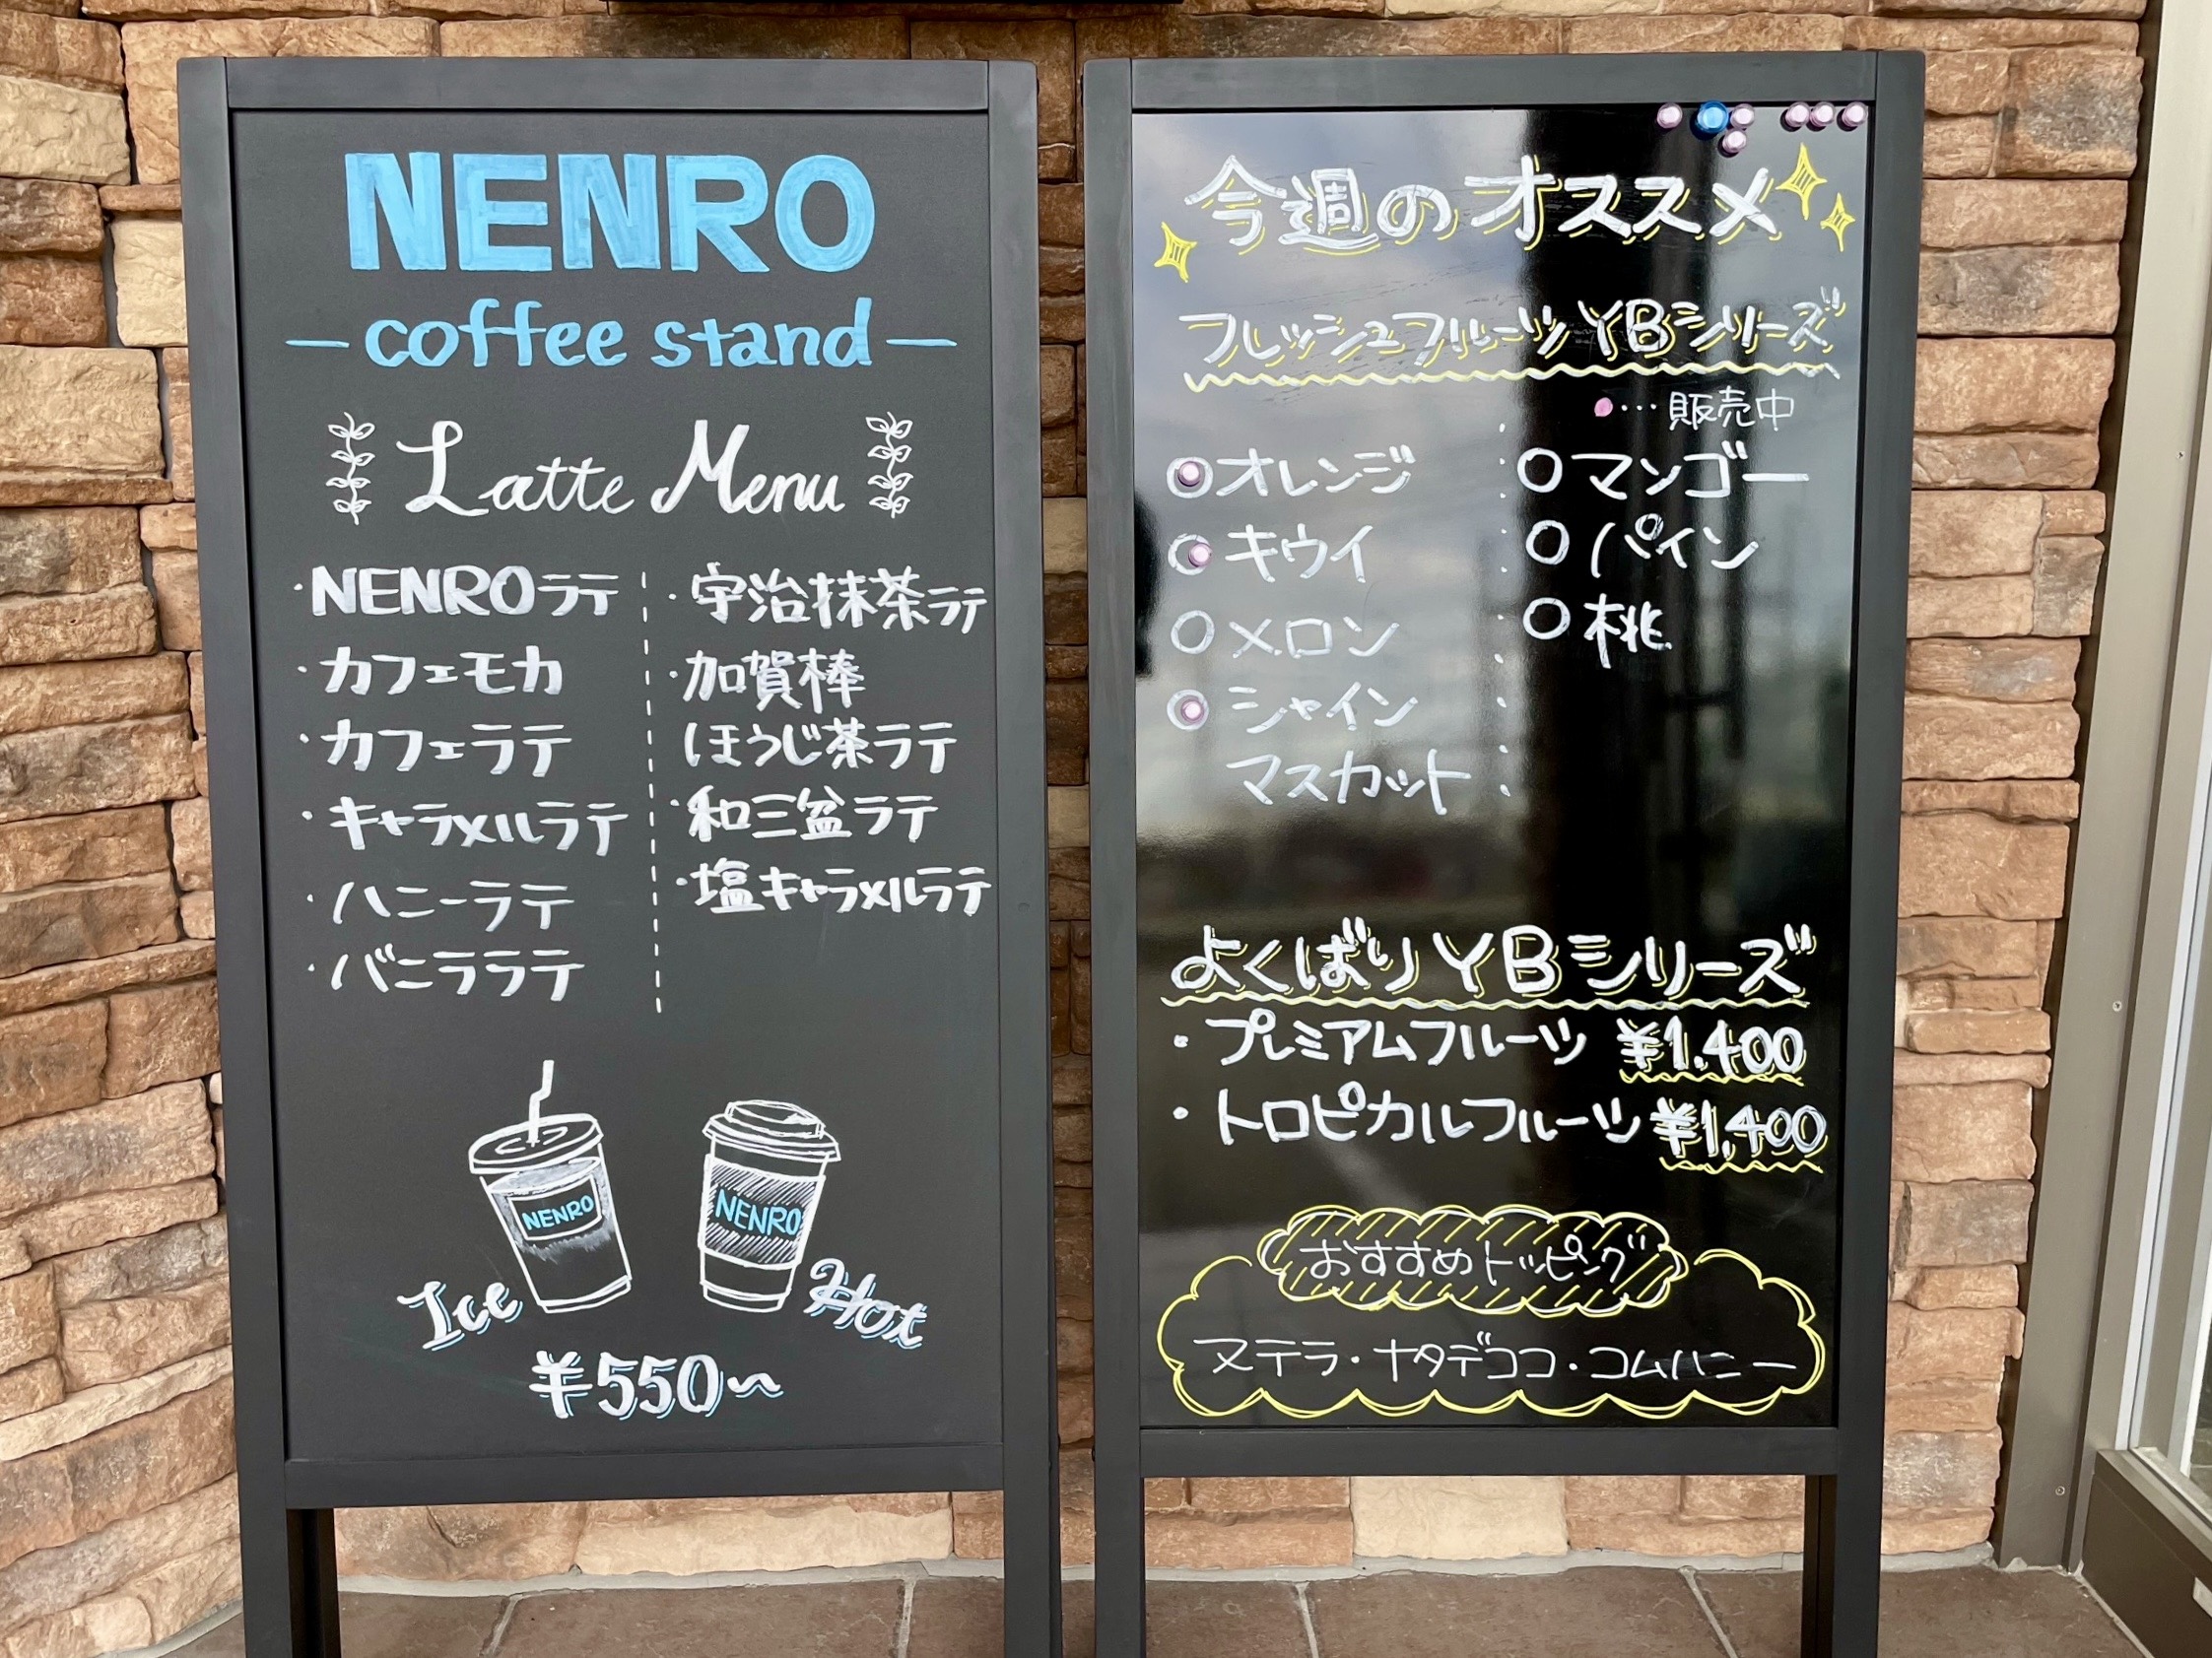 NENRO
coffee stand
Latte Menu
・NENROラテ
・カフェモカ
・カフェラテ
・キャラメルラテ
・ハニーラテ
・バニララテ
・宇治抹茶ラテ
・加賀棒
ほうじ茶ラテ
・和三盆ラテ
・塩キャラメルラテ
NENRO
NENRO
Ice
Hot
¥550〜
今週のオススメ
フレッシュフルーツYBシリーズ
●…販売中
○オレンジ
○キウイ
○メロン
○シャイン
マスカット
○マンゴー
○パイン
○桃
よくばりYBシリーズ
・プレミアムフルーツ ¥1.400
・トロピカルフルーツ ¥1,400
おすすめトッピング
ヌテラ・ナタデココ・コムハニー